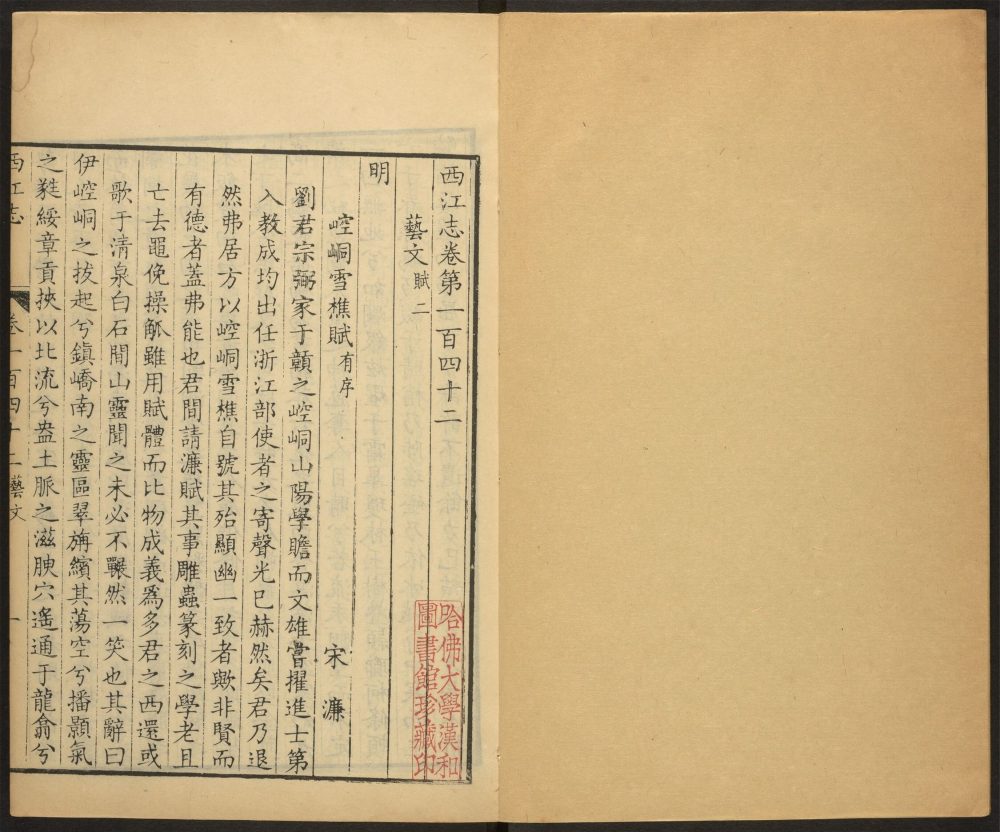 西江志卷第一百四十二
藝文賦二
明
崆峒雪樵賦有序 宋濂
劉君宗弼家于贛之崆峒山陽學贍而文雄嘗擢進士第
入教成均出任浙江部使者之寄聲光已赫然矣君乃退
然弗居方以崆峒雪樵自號其殆顯幽一致者歟非賢而
有德者蓋弗能也君間請濂賦其事雕蟲篆刻之學老且
亡去黽俛操觚雖用賦體而比物成義爲多君之西還或
歌于清泉白石間山靈聞之未必不囅然一笑也其辭曰
伊崆峒之拔起兮鎮嶠南之靈區翠旃繽其蕩空兮播顥氣
之蕤綏章貢挾以北流兮盎土脈之滋腴穴遙通于龍龠兮
西江志 卷一百四十二 藝文 一
哈佛大學漢和
圖書館珍藏印